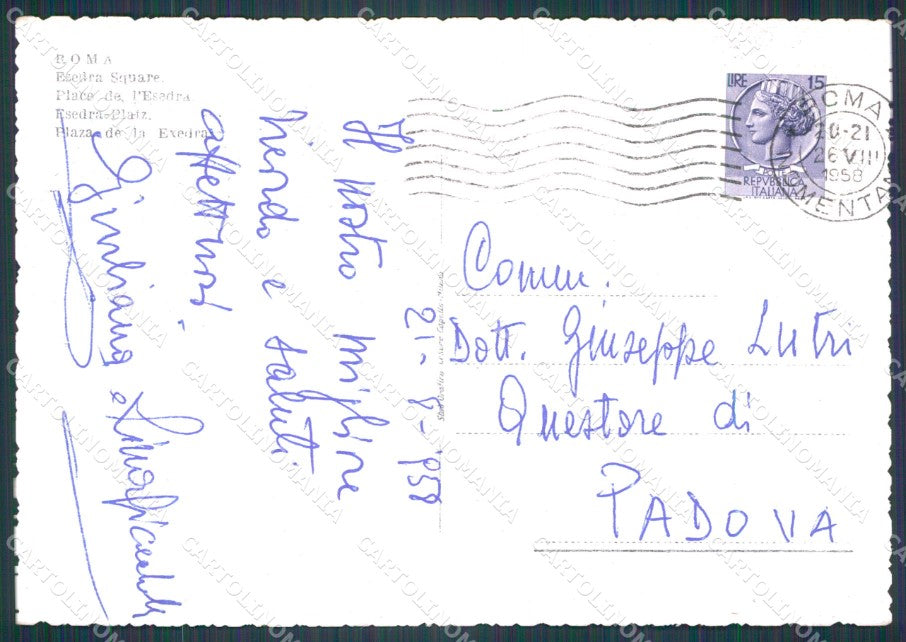 ROMA
Esedra Square.
Place de l'Esedra
Esedra-Platz.
Plaza de la Exedra
LIRE 15
REPVBBLICA
ITALIANA
ROMA
20-21
26 VIII
1958
NOMENTANO
21-8-958
Il nostro migliore
ricordo e saluti
affettuosi
Giuliana e
Comm.
Dott. Giuseppe Lutri
Questore di
PADOVA
CARTOLINOMANIA